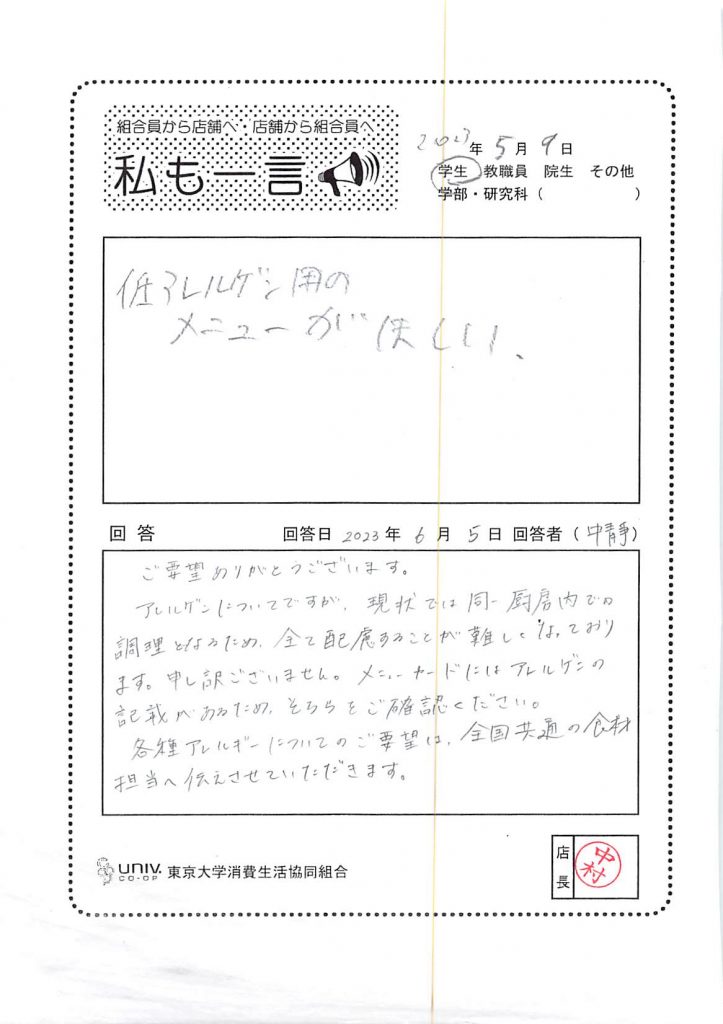 組合員から店舗へ・店舗から組合員へ
私も一言
2023年5月9日
学生 教職員 院生 その他
学部・研究科（ ）
低アレルゲン用の
メニューがほしい、
回答 回答日 2023年6月5日 回答者（中靜）
ご要望ありがとうございます。
アレルゲンについてですが、現状では同一厨房内での
調理となるため、全て配慮することが難しくなっており
ます。申し訳ございません。メニューカードにはアレルゲンの
記載があるため、そちらをご確認ください。
各種アレルギーについてのご要望は、全国共通の食材
担当へ伝えさせていただきます。
UNIV. CO-OP 東京大学消費生活協同組合
店長 中村